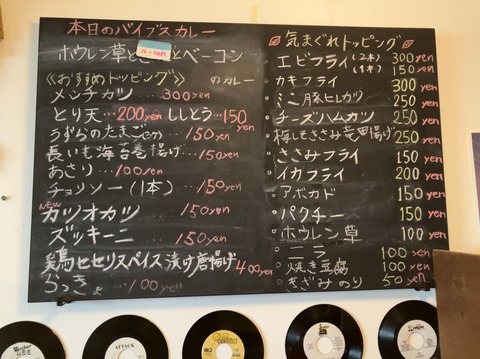 本日のバイブスカレー
ホウレン草と とベーコン
のカレー
《おすすめトッピング》
メンチカツ ……300yen
とり天…200yen ししとう…150yen
うずらのたまご …150yen
長いも海苔巻揚げ…150yen
あさり…100yen
チョリソー(1本)…150yen
NEW
カツオカツ ……150yen
ズッキーニ ……150yen
鶏セセリスパイス漬け唐揚げ 400yen
らっきょ …100yen
気まぐれトッピング
エビフライ(2本) 300yen
(1本) 150yen
カキフライ 300yen
ミニ豚ヒレカツ 250yen
チーズハムカツ 250yen
梅しそささみ竜田揚げ 250yen
ささみフライ 150yen
イカフライ 200yen
アボカド 150yen
パクチー 150yen
ホウレン草 100yen
ニラ 100yen
焼き豆腐 100yen
きざみのり 50yen
ATTACK